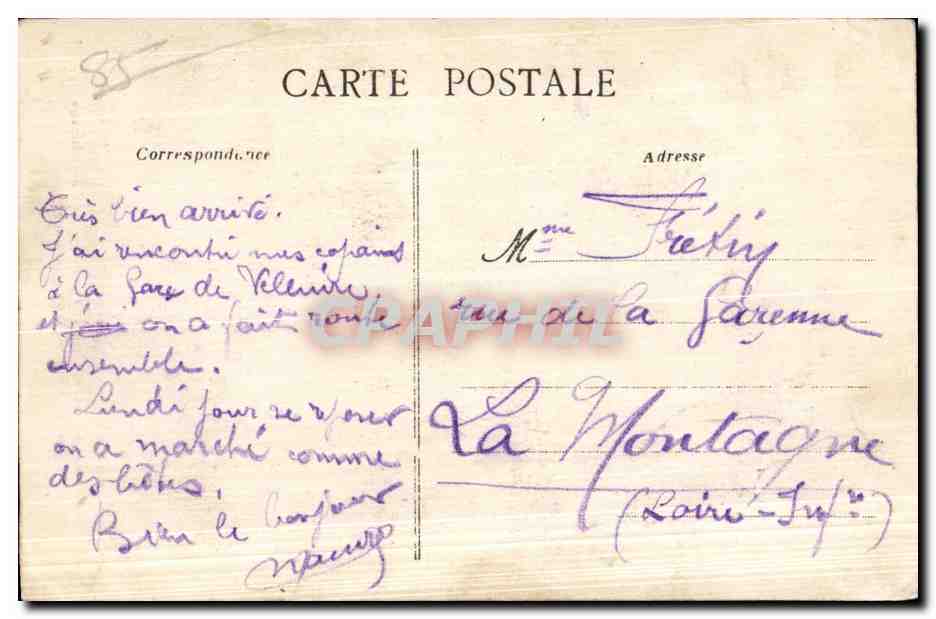 85
CARTE POSTALE
Correspondance
Adresse
Très bien arrivé.
J'ai rencontré mes copains
à la Gare de Velluire
et j'ai on a fait route
ensemble.
Lundi jour se reposer
on a marché comme
des bêtes.
Bien le bonjour
Mme Frétiy
rue de la Garenne
La Montagne
(Loire-Infre)
CPAPHIL